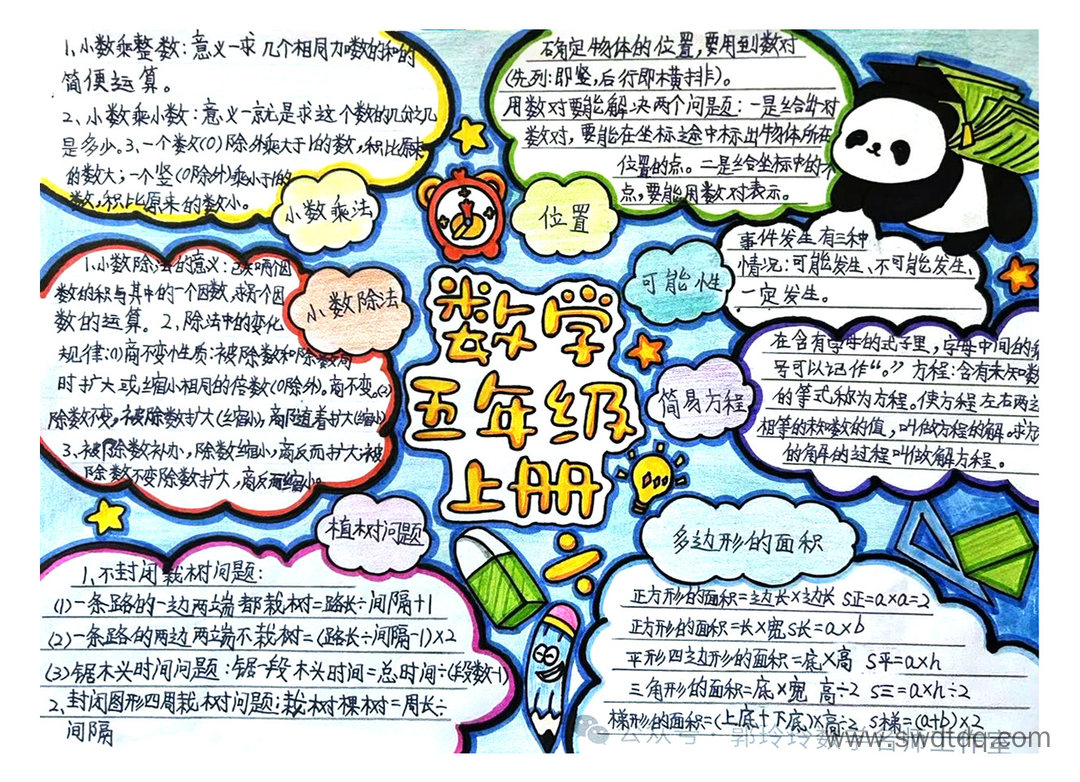 1、小数乘整数：意义—求几个相同加数的和的
简便运算。
2、小数乘小数：意义—就是求这个数的几分之几
是多少。3、一个数(0)除外乘大于1的数，积比原来
的数大；一个竖(0除外)乘小于1的
数，积比原来的数小。
小数乘法
确定物体的位置，要用到数对
(先列：即竖，后行即横排)。
用数对要能解决两个问题：一是给一对
数对，要能在坐标途中标出物体所在
位置的点。二是给坐标中的
点，要能用数对表示。
位置
1.小数除法的意义：已知两个因
数的积与其中的一个因数，求另一个因
数的运算。2、除法中的变化
规律：(1)商不变性质：被除数和除数同
时扩大或缩小相同的倍数(0除外)。商不变。(2)
除数不变，被除数扩大(缩小)，商随着扩大(缩小)
3、被除数补办，除数缩小，商反而扩大；被
除数不变除数扩大，商反而缩小。
小数除法
事件发生有三种
情况：可能发生、不可能发生、
一定发生。
可能性
数学
五年级
上册
在含有字母的式子里，字母中间的
号可以记作“。”方程：含有未知数
的等式称为方程。使方程左右两边
相等的未知数的值，叫做方程的解。求方
的解的过程叫做解方程。
简易方程
植树问题
1、不封闭栽树问题：
(1)一条路的一边两端都栽树=路长÷间隔+1
(2)一条路的两边两端不栽树=(路长÷间隔-1)×2
(3)锯木头时间问题：锯一段木头时间=总时间÷(段数-1)
2、封闭图形四周栽树问题：栽树棵树=周长÷
间隔
多边形的面积
正方形的面积=边长×边长 S正=a×a=2
正方形的面积=长×宽 S长=a×b
平形四边形的面积=底×高 S平=a×h
三角形的面积=底×宽 高÷2 S三=a×h÷2
梯形的面积=(上底+下底)×高÷2 S梯=(a+b)×2
公众号·郭玲玲数学名师工作室
www.swdtdq.com